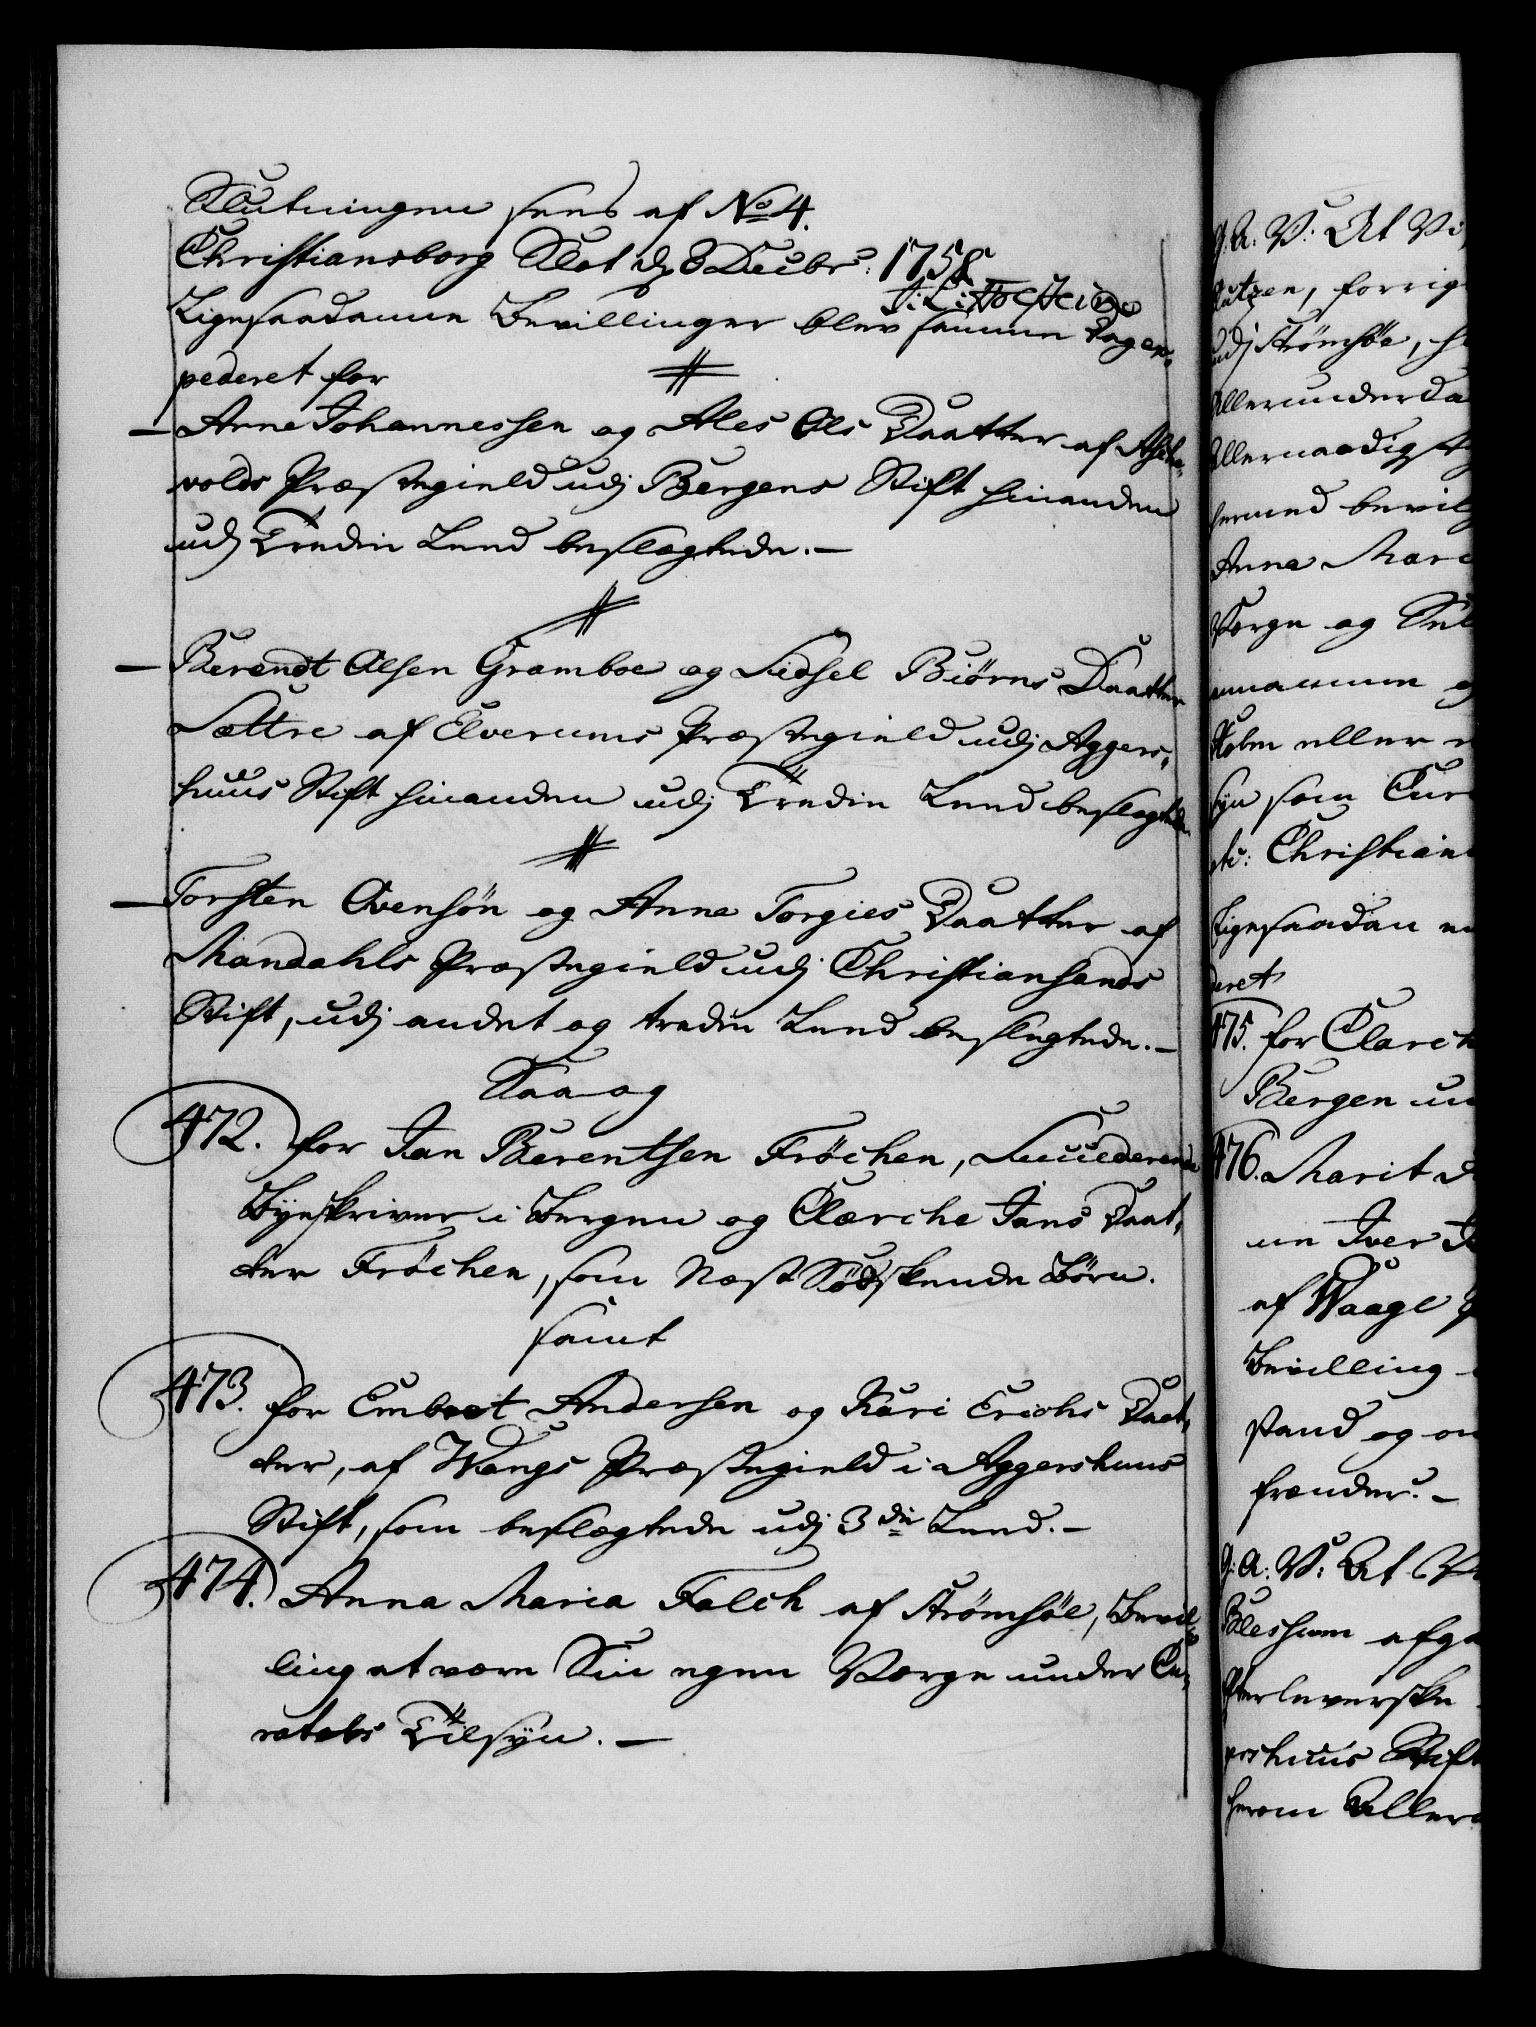 Slutningen sees af No 4.
Christiansborg Slot d. 8 Decbr: 1758.
J: L: Holstein
Ligesaadanne Bevillinger blev samme Dag ex-
pederet for
Arne Johannessen og Ales Ols Daatter af Ask-
volds Præstegield udj Bergens Stift hinanden
udj Tredie Leed beslægtede.
Berendt Olsen Gramboe og Sidsel Biørns Daatter
Sættre af Elverums Præstegield udj Aggers-
huus Stift hinanden udj Tredie Leed beslægtede
Torsten Ovensøn og Anne Torgies Daatter af
Mandahls Præstegield udj Christiansands
Stift, udj andet og tredie Leed beslegtede.
Saa og
472. for Jan Berentsen Fröchen, Succederende
Byeskriver i Bergen og Clærche Jans Daat-
ter Fröchen, som Næst Södskende Børn.
samt
473. for Embret Andersen og Kari Erichs Daat-
ter, af Wangs Præstegield i Aggershuus
Stift, som beslægtede udj 3die Leed.
474. Anna Maria Falch af Strømsöe, Bevil-
ling at være Sin egen Værge under Cu-
rators Tilsyn.
g. A. V: At Vi
udj Strømsöe, h
Allerunderda
Allernaadigst
hermed bevilg
Anna Mari
Værge og
Holm eller
syn som Cur
etc: Christian
Ligesaadan
deret
475. for Clarch
Bergen
476. Marit
Iver
af Waage
Bevilling
stand og
frænder.
g. A. V: At Vi
afg
Efterleverske
gershuus Stift
herom Aller